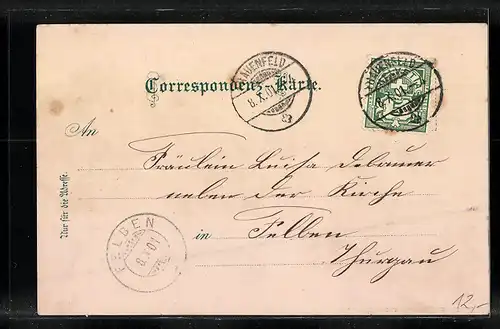 FRAUENFELD
8.X.01
FRAUENFELD
8.X.01
Correspondenz-Karte.
An
Nur für die Adresse.
Fräulein Luisa Debauer
neben der Kirche
in Felben
Thurgau
FELBEN
8.X.01
12,-